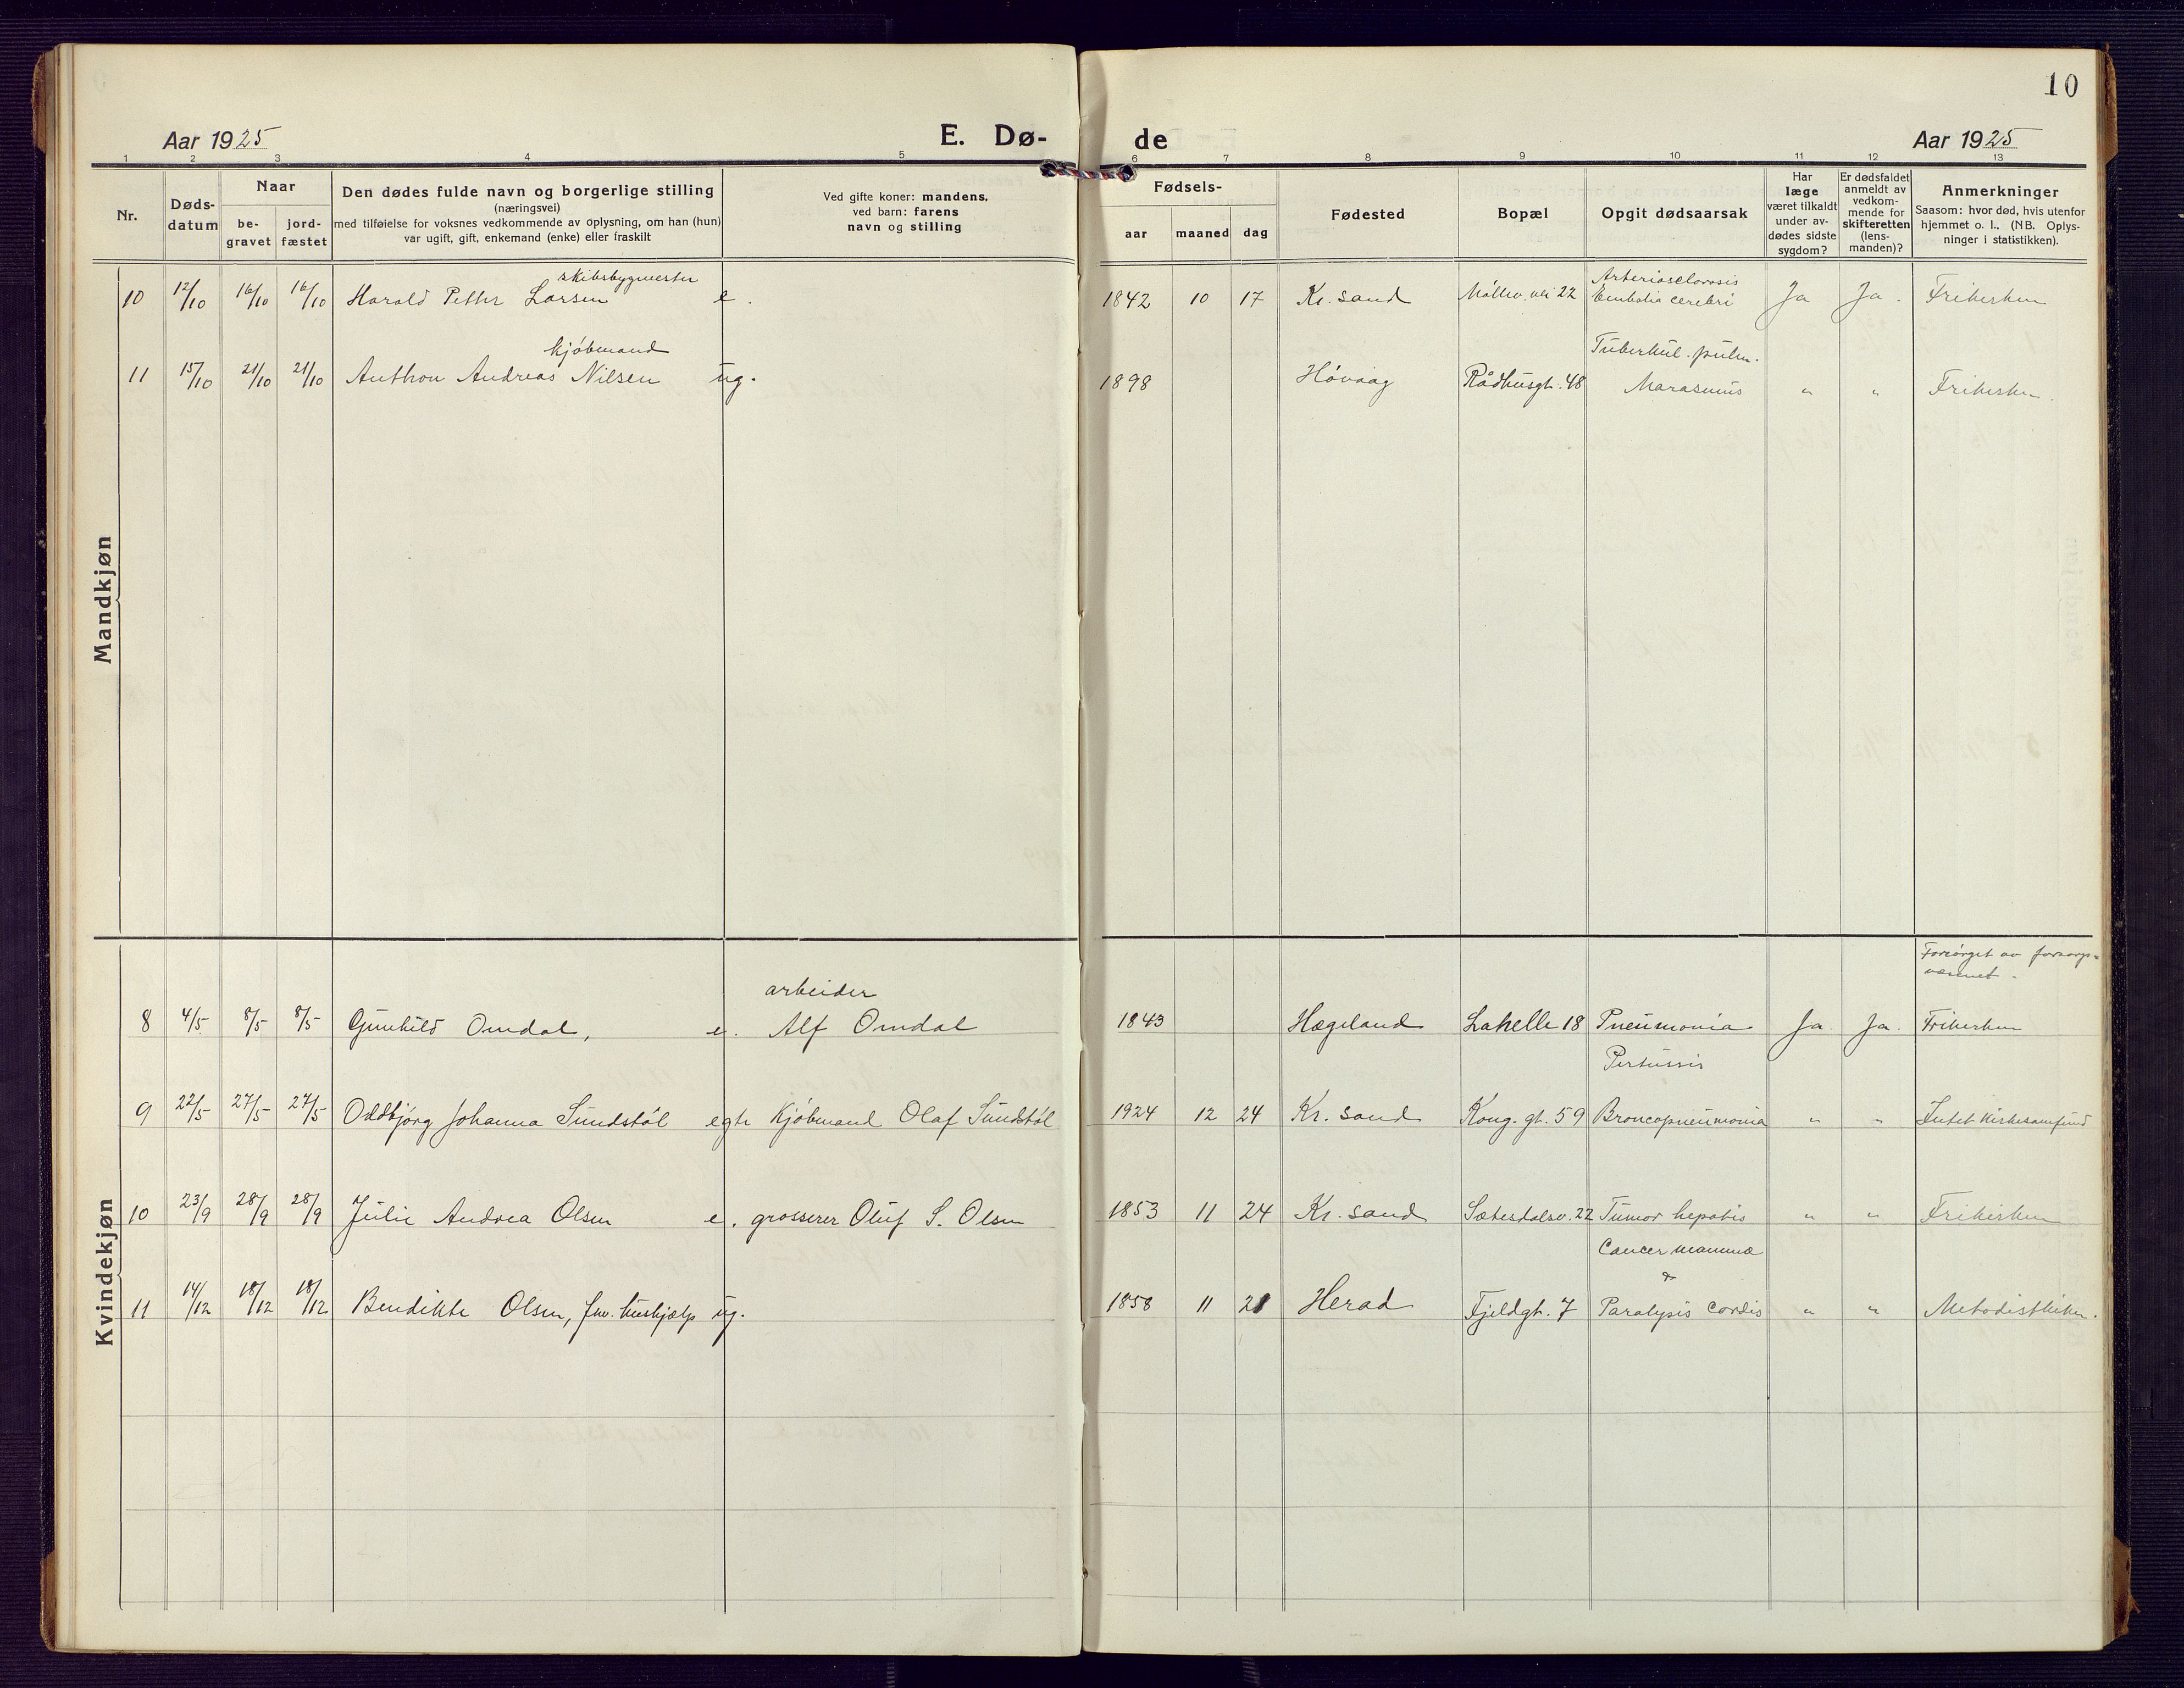 10
Aar 1925 E. Dø- de Aar 1925
1 2 3 4 5 6 7 8 9 10 11 12 13
Nr.
Døds-
datum
Naar
be-
gravet
jord-
fæstet
Den dødes fulde navn og borgerlige stilling
(næringsvei)
med tilføielse for voksnes vedkommende av oplysning, om han (hun)
var ugift, gift, enkemand (enke) eller fraskilt
Ved gifte koner: mandens,
ved barn: farens
navn og stilling
Fødsels-
aar maaned dag
Fødested
Bopæl
Opgit dødsaarsak
Har
læge
været tilkaldt
under av-
dødes sidste
sygdom?
Er dødsfaldet
anmeldt av
vedkom-
mende for
skifteretten
(lens-
manden)?
Anmerkninger
Saasom: hvor død, hvis utenfor
hjemmet o. l., (NB. Oplys-
ninger i statistikken).
Mandkjøn
skibsbygmester
Arteriosclerosis
10 12/10 16/10 16/10 Harald Petter Larsen e. 1842 10 17 Kr. sand Møllev. vei 22 Embolia cerebri Ja Ja. Frikirken
kjøbmand
Tuberkul. pulm.
11 15/10 21/10 21/10 Anthon Andreas Nilsen ug. 1898 Høvaag Rådhusgt. 48 Marasmus " " Frikirken.
Kvindekjøn
Forsørget av forsorgs-
væsenet.
arbeider
8 4/5 8/5 8/5 Gunhild Omdal, e. Alf Omdal 1843 Hægeland Lahelle 18 Pneumonia Ja. Ja. Frikirken
Pertussis
9 22/5 27/5 27/5 Oddbjørg Johanna Sundstøl egte Kjøbmand Olaf Sundstøl 1924 12 24 Kr. sand Kong. gt. 59 Broncopneumonia " " Intet kirkesamfund
10 23/9 28/9 28/9 Julie Andrea Olsen e. grosserer Oluf S. Olsen 1853 11 24 Kr. sand Sætersdalsv. 22 Tumor hepatis " " Frikirken
Cancer mammæ
&
11 14/12 18/12 18/12 Bendikte Olsen, fhv. hushjælp ug. 1858 11 21 Herad Fjeldgt. 7 Paralysis cordis " " Metodistkirken.